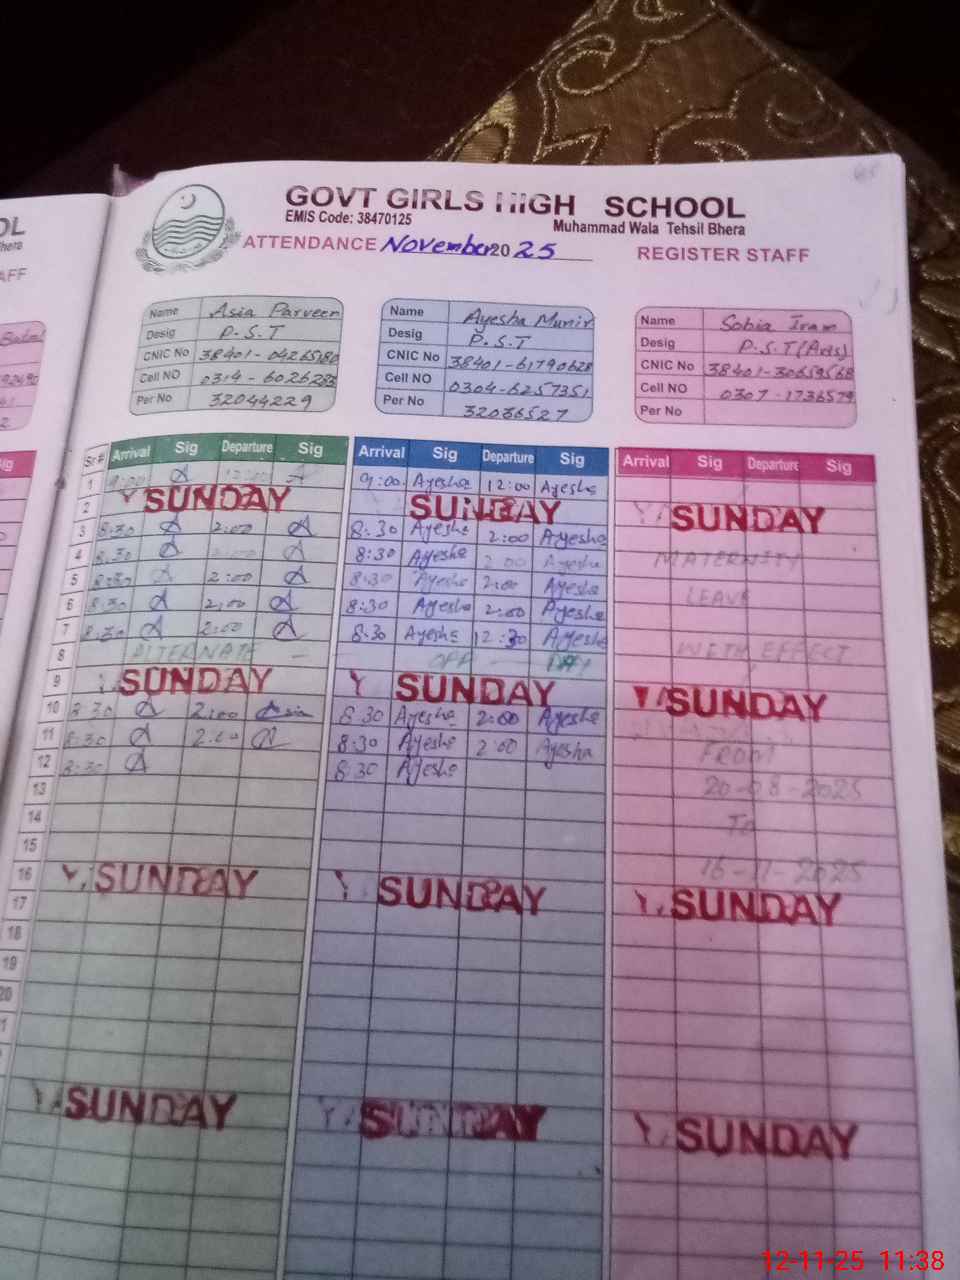 OL
hera
AFF
GOVT GIRLS HIGH SCHOOL
EMIS Code: 38470125
Muhammad Wala Tehsil Bhera
ATTENDANCE November 2025
REGISTER STAFF
Name Asia Parveen
Desig P.S.T
CNIC No
Cell NO
Per No 32044229
Name Ayesha Munir
Desig P.S.T
CNIC No 38401-61790628
Cell NO 0304-6257351
Per No 32036527
Name Sobia Iram
Desig P.S.T (Arts)
CNIC No 38401-30659568
Cell NO 0307-1736579
Per No
Sr# Arrival Sig Departure Sig Arrival Sig Departure Sig Arrival Sig Departure Sig
1 9:00 12:00 9:00 Ayesha 12:00 Ayesha
2 SUNDAY SUNDAY SUNDAY
3 8:30 2:00 8:30 Ayesha 2:00 Ayesha
4 8:30 2:00 8:30 Ayesha 2:00 Ayesha MATERNITY
5 8:30 2:00 8:30 Ayesha 2:00 Ayesha LEAVE
6 8:30 2:00 8:30 Ayesha 2:00 Ayesha
7 8:30 2:00 8:30 Ayesha 12:30 Ayesha WITH EFFECT
8 ALTERNATE — OFF — DAY
9 SUNDAY SUNDAY SUNDAY
10 8:30 2:00 Asia 8:30 Ayesha 2:00 Ayesha
11 8:30 2:00 8:30 Ayesha 2:00 Ayesha FROM
12 8:30 8:30 Ayesha 20-08-2025
13
14 To
15
16 SUNDAY SUNDAY 16-11-2025
17 SUNDAY
18
19
20
SUNDAY SUNDAY SUNDAY
12-11-25 11:38